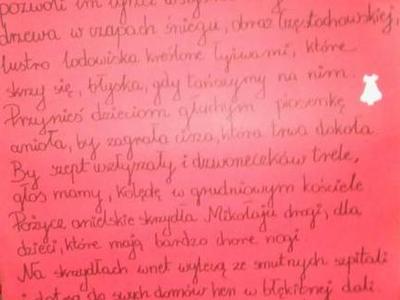 pozwoli im ujrzeć
drzewa w czapach śniegu, obraz Częstochowskiej,
lustro lodowiska kreślone łyżwami, które
skrzy się, błyska, gdy tańczymy na nim.
Przynieś dzieciom głuchym piosenkę
anioła, by zagrała cisza, która trwa dokoła.
By szept usłyszały i dzwoneczków trele,
głos mamy, kolędę w grudniowym kościele
Pożycz anielskie skrzydła Mikołaju drogi, dla
dzieci, które mają bardzo chore nogi
Na skrzydłach wnet wylecą ze smutnych szpitali
i dotrą do swych domów hen w błękitnej dali.